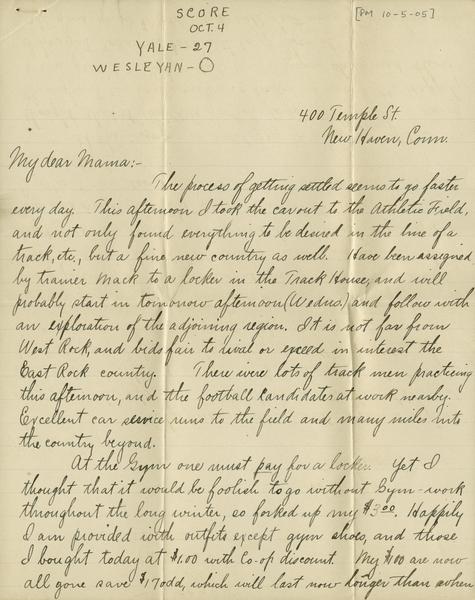 SCORE
OCT. 4
YALE - 27
WESLEYAN - 0
[PM 10-5-05]
400 Temple St.
New Haven, Conn.
My dear Mama:-
The process of getting settled seems to go faster
every day. This afternoon I took the car out to the Athletic Field,
and not only found everything to be desired in the line of a
track, etc., but a fine new country as well. Have been assigned
by trainer Mack to a locker in the Track House, and will
probably start in tomorrow afternoon (Wednes) and follow with
an exploration of the adjoining region. It is not far from
West Rock, and bids fair to rival or exceed in interest the
East Rock country. There were lots of track men practicing
this afternoon, and the football candidates at work nearby.
Excellent car service runs to the field and many miles into
the country beyond.
At the Gym one must pay for a locker. Yet I
thought that it would be foolish to go without Gym-work
throughout the long winter, so forked up my $3.00. Happily
I am provided with outfits except gym shoes, and those
I bought today at $1.00 with Co-op discount. My $100 are now
all gone save $17 odd, which will last now longer than when